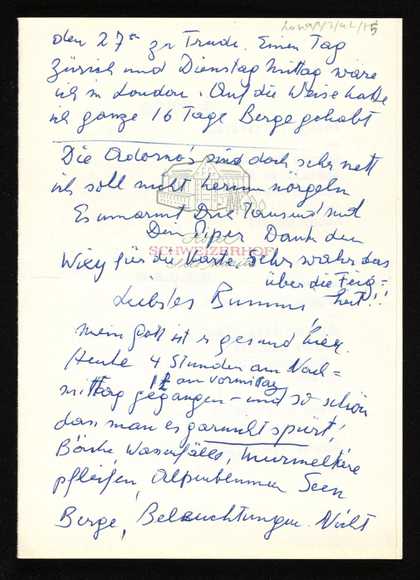 den 27ten zu Trude. Einen Tag
Zürich und Dienstag Mittag wäre
ich in London. Auf die Weise hätte
ich ganze 16 Tage Berge gehabt
Die Adorno's sind doch sehr nett
ich soll nicht herum nörgeln
Es umarmt Dich Tausend mal
Dein Piper Dank dem
SCHWEIZERHOF
Wiey für die Karte. Sehr wahr das
über die Feig=
heit!!
Liebstes Bumm
mein Gott ist es gesund hier.
Heute 4 Stunden am Nach=
mittag 1½ am vormittag
gegangen – und so schön
dass man es garnicht spürt!
Bäche, Wasserfälle, Murmeltiere
pfeifen, Alpenblumen Seen
Berge, Beleuchtungen. Nicht